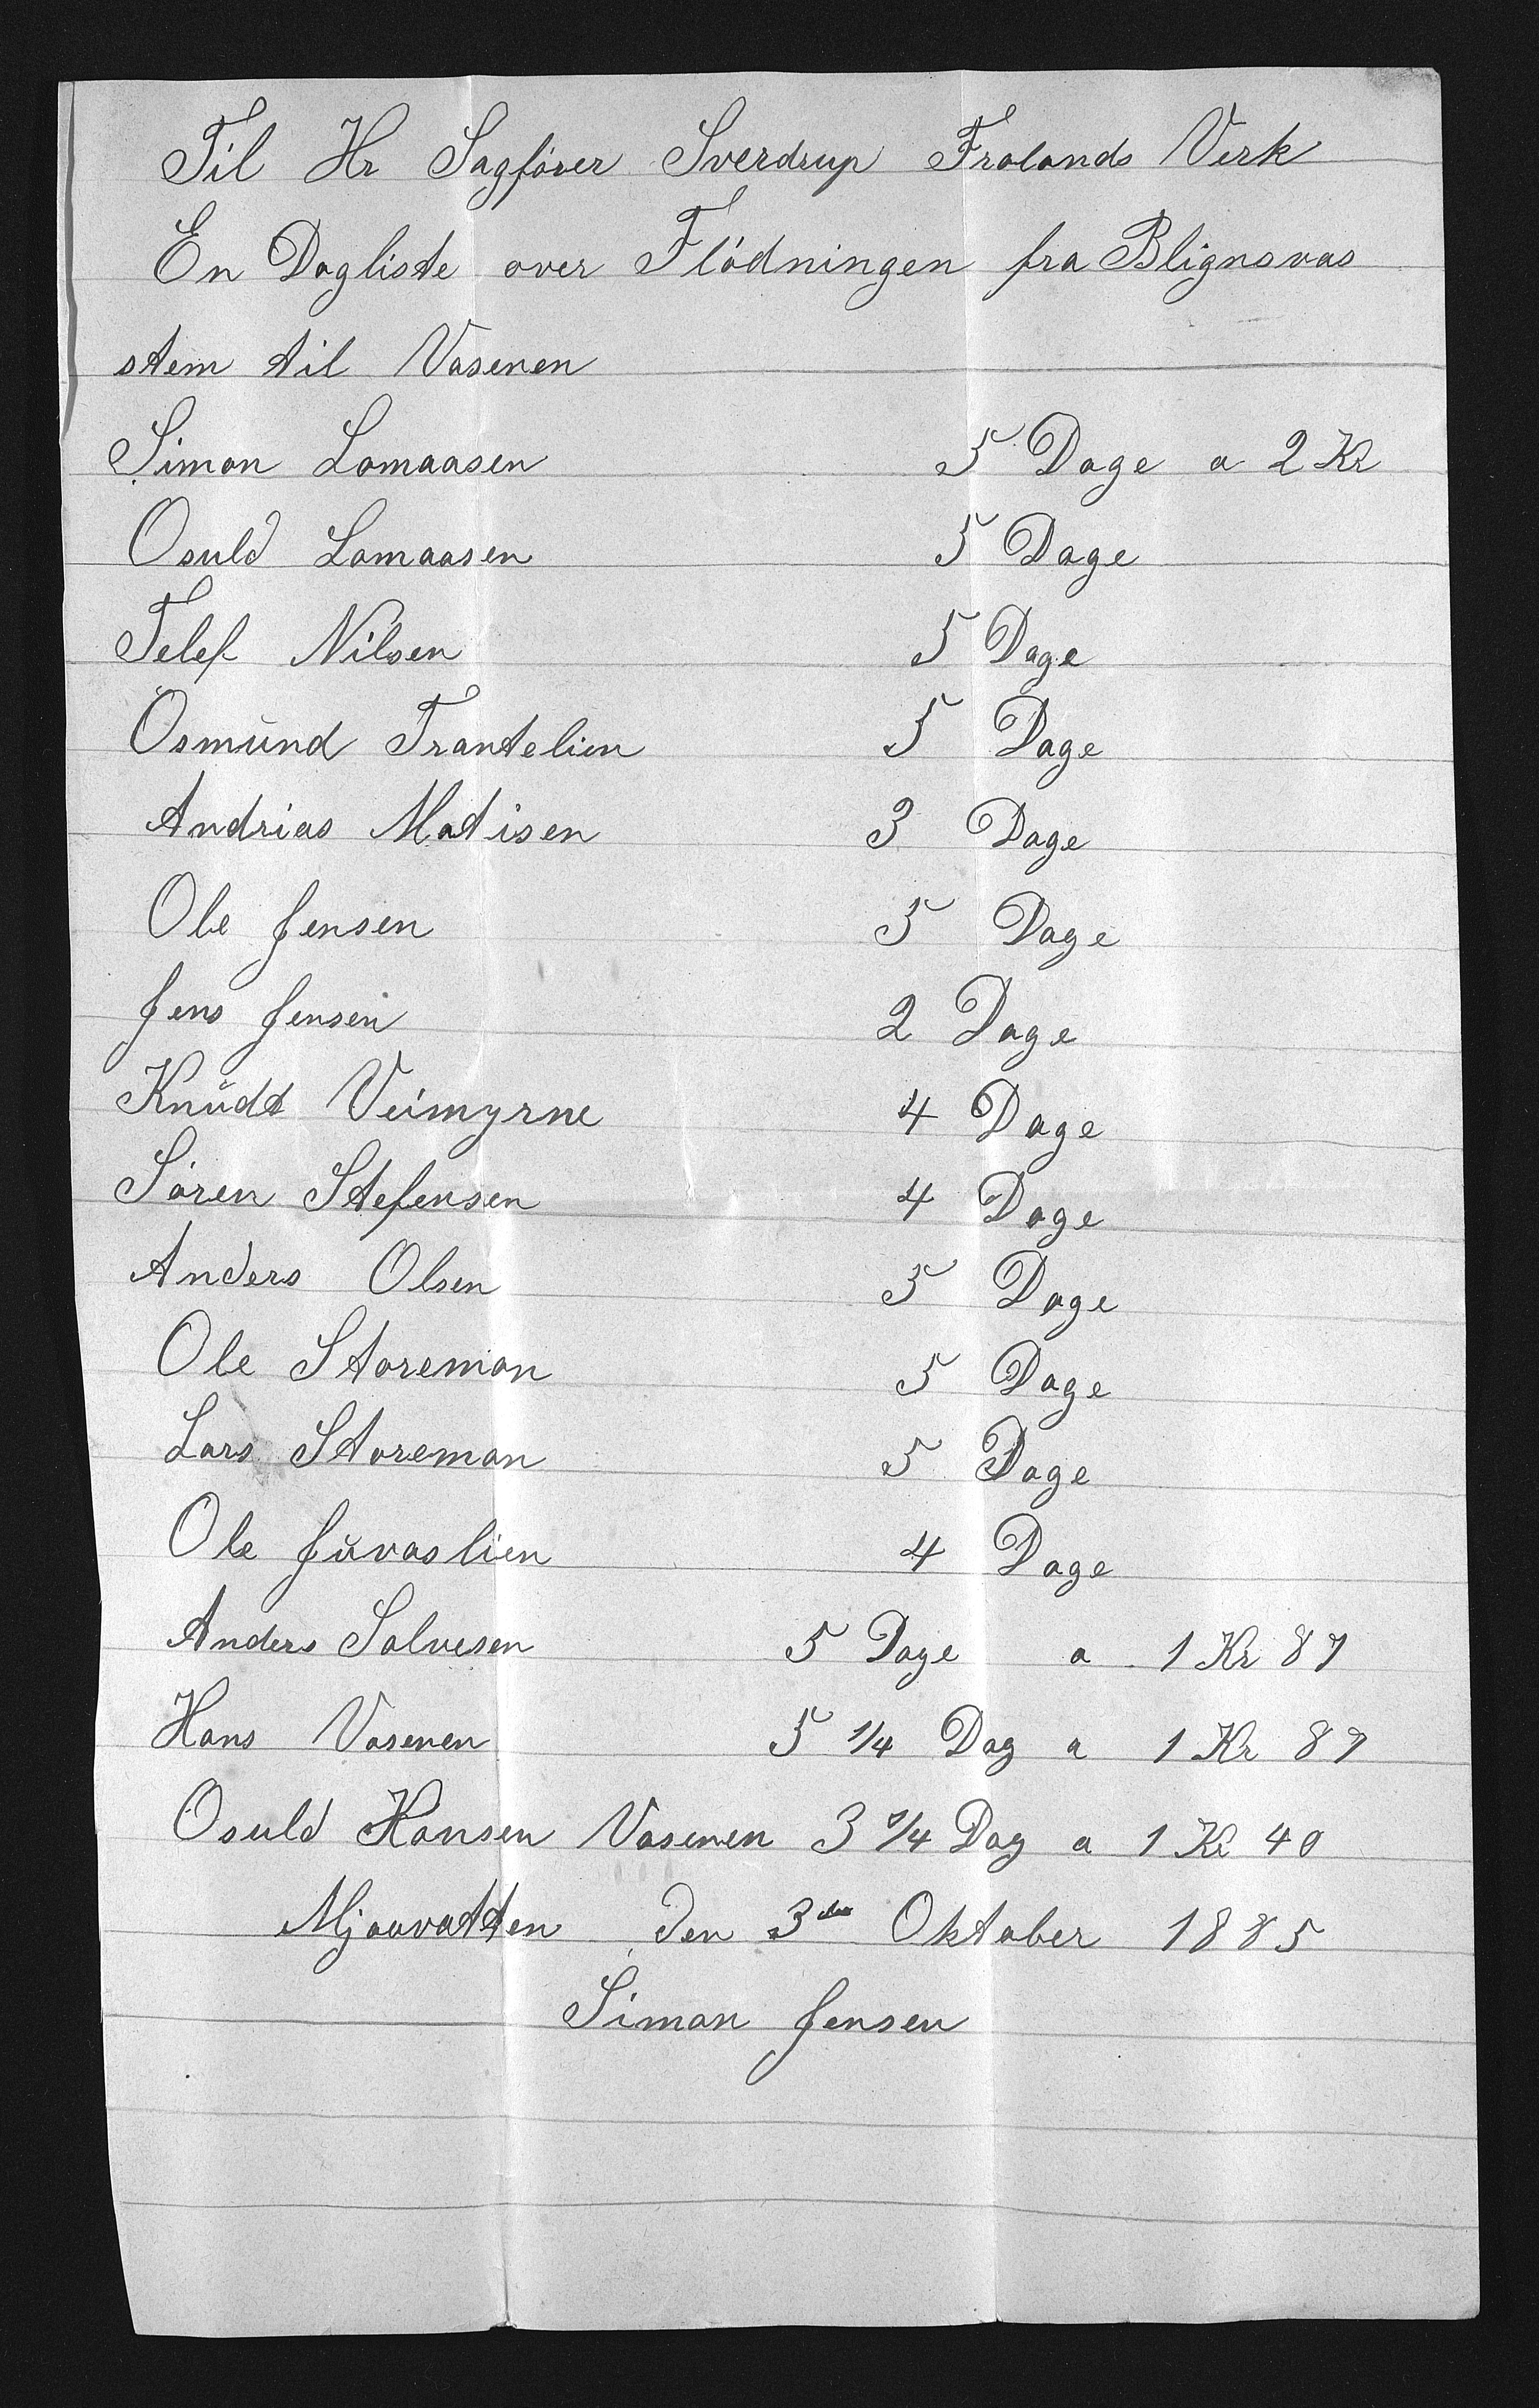 Til Hr Sagfører Sverdrup Frolands Verk
En Dagliste over Flødningen fra Blignsvas
stem til Vasenen
Simon Lomaasen 5 Dage a 2 Kr
Osuld Lomaasen 5 Dage
Telef Nilsen 5 Dage
Osmund Trantelien 5 Dage
Andrias Matisen 3 Dage
Ole Jensen 5 Dage
Jens Jensen 2 Dage
Knudt Veimyrne 4 Dage
Søren Stefensen 4 Dage
Anders Olsen 5 Dage
Ole Storemon 5 Dage
Lars Storemon 5 Dage
Ole Juvaslien 4 Dage
Anders Salvesen 5 Dage a 1 Kr 87
Hans Vasenen 5 1/4 Dag a 1 Kr 87
Osuld Hansen Vasenen 3 1/4 Dag a 1 Kr 40
Mjaavatten den 3die Oktober 1885
Simon Jensen